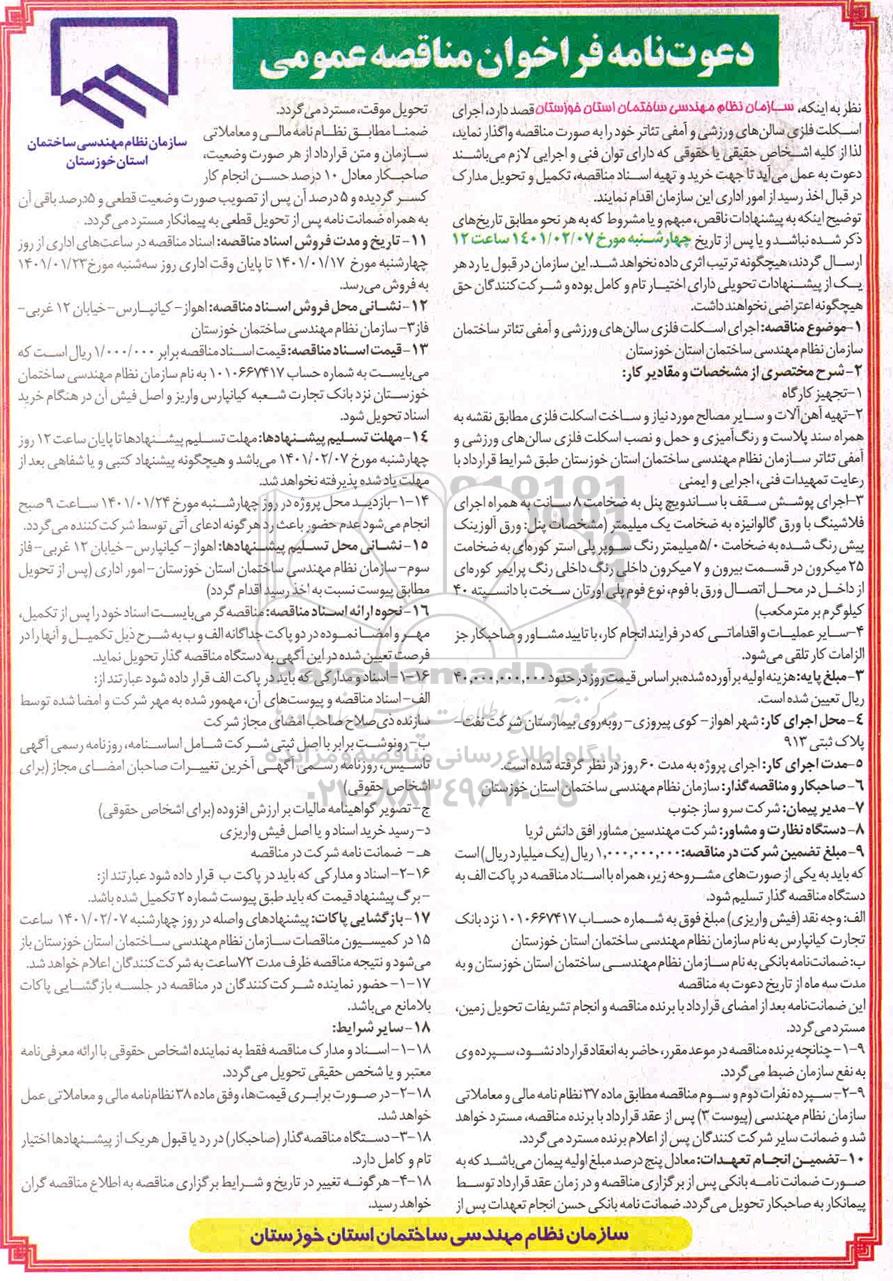 دعوت‌نامه فراخوان مناقصه عمومی
سازمان نظام مهندسی ساختمان
استان خوزستان
نظر به اینکه، سازمان نظام مهندسی ساختمان استان خوزستان قصد دارد، اجرای
اسکلت فلزی سالن‌های ورزشی و آمفی تئاتر خود را به صورت مناقصه واگذار نماید،
لذا از کلیه اشخاص حقیقی یا حقوقی که دارای توان فنی و اجرایی لازم می‌باشند
دعوت به عمل می‌آید تا جهت خرید و تهیه اسناد مناقصه، تکمیل و تحویل مدارک
در قبال اخذ رسید از امور اداری این سازمان اقدام نمایند.
توضیح اینکه به پیشنهادات ناقص، مبهم و یا مشروط که به هر نحو مطابق تاریخ‌های
ذکر شده نباشد و یا پس از تاریخ چهارشنبه مورخ ۱۴۰۱/۰۲/۰۷ ساعت ۱۲
ارسال گردند، هیچگونه ترتیب اثری داده نخواهد شد. این سازمان در قبول یا رد هر
یک از پیشنهادات تحویلی دارای اختیار تام و کامل بوده و شرکت کنندگان حق
هیچگونه اعتراضی نخواهند داشت.
۱-موضوع مناقصه: اجرای اسکلت فلزی سالن‌های ورزشی و آمفی تئاتر ساختمان
سازمان نظام مهندسی ساختمان استان خوزستان
۲-شرح مختصری از مشخصات و مقادیر کار:
۱-تجهیز کارگاه
۲-تهیه آهن آلات و سایر مصالح مورد نیاز و ساخت اسکلت فلزی مطابق نقشه به
همراه سند پلاست و رنگ‌آمیزی و حمل و نصب اسکلت فلزی سالن‌های ورزشی و
آمفی تئاتر سازمان نظام مهندسی ساختمان استان خوزستان طبق شرایط قرارداد با
رعایت تمهیدات فنی، اجرایی و ایمنی
۳-اجرای پوشش سقف با ساندویچ پنل به ضخامت ۸ سانت به همراه اجرای
فلاشینگ با ورق گالوانیزه به ضخامت یک میلیمتر (مشخصات پنل: ورق آلوزینک
پیش رنگ شده به ضخامت ۵/۰ میلیمتر رنگ سوپر پلی استر کوره‌ای به ضخامت
۲۵ میکرون در قسمت بیرون و ۷ میکرون داخلی رنگ داخلی رنگ پرایمر کوره‌ای
از داخل در محل اتصال ورق با فوم، نوع فوم پلی اورتان سخت با دانسیته ۴۰
کیلوگرم بر متر مکعب)
۴-سایر عملیات و اقداماتی که در فرایند انجام کار، با تایید مشاور و صاحبکار جز
الزامات کار تلقی می‌شود.
۳-مبلغ پایه: هزینه اولیه برآورده شده، بر اساس قیمت روز در حدود ۴۰,۰۰۰,۰۰۰,۰۰۰
ریال تعیین شده است.
۴- محل اجرای کار: شهر اهواز- کوی پیروزی- روبه‌روی بیمارستان شرکت نفت-
پلاک ثبتی ۹۱۳
۵-مدت اجرای کار: اجرای پروژه به مدت ۶۰ روز در نظر گرفته شده است.
۶-صاحبکار و مناقصه گذار: سازمان نظام مهندسی ساختمان استان خوزستان
۷- مدیر پیمان: شرکت سرو ساز جنوب
۸- دستگاه نظارت و مشاور: شرکت مهندسین مشاور افق دانش ثریا
۹-مبلغ تضمین شرکت در مناقصه: ۱,۰۰۰,۰۰۰,۰۰۰ ریال (یک میلیارد ریال) است
که باید به یکی از صورت‌های مشروحه زیر، همراه با اسناد مناقصه در پاکت الف به
دستگاه مناقصه گذار تسلیم شود.
الف: وجه نقد (فیش واریزی) مبلغ فوق به شماره حساب ۱۰۱۰۶۶۷۴۱۷ نزد بانک
تجارت کیانپارس به نام سازمان نظام مهندسی ساختمان استان خوزستان
ب: ضمانت‌نامه بانکی به نام سازمان نظام مهندسی ساختمان استان خوزستان و به
مدت سه ماه از تاریخ دعوت به مناقصه
این ضمانت‌نامه بعد از امضای قرارداد با برنده مناقصه و انجام تشریفات تحویل زمین،
مسترد می‌گردد.
۹-۱-چنانچه برنده مناقصه در موعد مقرر، حاضر به انعقاد قرارداد نشود، سپرده وی
به نفع سازمان ضبط می‌گردد.
۹-۲-سپرده نفرات دوم و سوم مناقصه مطابق ماده ۳۷ نظام نامه مالی و معاملاتی
سازمان نظام مهندسی (پیوست ۳) پس از عقد قرارداد با برنده مناقصه، مسترد خواهد
شد و ضمانت سایر شرکت کنندگان پس از اعلام برنده مسترد می‌گردد.
۱۰-تضمین انجام تعهدات: معادل پنج درصد مبلغ اولیه پیمان می‌باشد که به
صورت ضمانت نامه بانکی پس از برگزاری مناقصه و در زمان عقد قرارداد توسط
پیمانکار به صاحبکار تحویل می‌گردد. ضمانت نامه بانکی حسن انجام تعهدات پس از
تحویل موقت، مسترد می‌گردد.
ضمنا مطابق نظام نامه مالی و معاملاتی
سازمان و متن قرارداد از هر صورت وضعیت،
صاحبکار معادل ۱۰ درصد حسن انجام کار
کسر گردیده و ۵ درصد آن پس از تصویب صورت وضعیت قطعی و ۵درصد باقی آن
به همراه ضمانت نامه پس از تحویل قطعی به پیمانکار مسترد می‌گردد.
۱۱- تاریخ و مدت فروش اسناد مناقصه: اسناد مناقصه در ساعت‌های اداری از روز
چهارشنبه مورخ ۱۴۰۱/۰۱/۱۷ تا پایان وقت اداری روز سه‌شنبه مورخ ۱۴۰۱/۰۱/۲۳
به فروش می‌رسد.
۱۲- نشانی محل فروش اسناد مناقصه: اهواز- کیانپارس- خیابان ۱۲ غربی-
فاز۳- سازمان نظام مهندسی ساختمان خوزستان
۱۳- قیمت اسناد مناقصه: قیمت اسناد مناقصه برابر ۱/۰۰۰/۰۰۰ ریال است که
می‌بایست به شماره حساب ۱۰۱۰۶۶۷۴۱۷ به نام سازمان نظام مهندسی ساختمان
خوزستان نزد بانک تجارت شعبه کیانپارس واریز و اصل فیش آن در هنگام خرید
اسناد تحویل شود.
۱۴-مهلت تسلیم پیشنهادها: مهلت تسلیم پیشنهادها تا پایان ساعت ۱۲ روز
چهارشنبه مورخ ۱۴۰۱/۰۲/۰۷ می‌باشد و هیچگونه پیشنهاد کتبی و یا شفاهی بعد از
مهلت یاد شده پذیرفته نخواهد شد.
۱۴-۱-بازدید محل پروژه در روز چهارشنبه مورخ ۱۴۰۱/۰۱/۲۴ ساعت ۹ صبح
انجام می‌شود عدم حضور باعث رد هرگونه ادعای آتی توسط شرکت کننده می‌گردد.
۱۵- نشانی محل تسلیم پیشنهادها: اهواز- کیانپارس- خیابان ۱۲ غربی- فاز
سوم- سازمان نظام مهندسی ساختمان استان خوزستان- امور اداری (پس از تحویل
مطابق پیوست نسبت به اخذ رسید اقدام گردد)
۱۶- نحوه ارائه اسناد مناقصه: مناقصه‌گر می‌بایست اسناد خود را پس از تکمیل،
مهر و امضا نموده در دو پاکت جداگانه الف و ب به شرح ذیل تکمیل و آنها را در
فرصت تعیین شده در این آگهی به دستگاه مناقصه گذار تحویل نماید.
۱۶-۱- اسناد و مدارکی که باید در پاکت الف قرار داده شود عبارتند از:
الف- اسناد مناقصه و پیوست‌های آن، مهمور شده به مهر شرکت و امضا شده توسط
سازنده ذی‌صلاح صاحب امضای مجاز شرکت
ب- رونوشت برابر با اصل ثبتی شرکت شامل اساسنامه، روزنامه رسمی آگهی
تاسیس، روزنامه رسمی آگهی آخرین تغییرات صاحبان امضای مجاز (برای
اشخاص حقوقی)
ج- تصویر گواهینامه مالیات بر ارزش افزوده (برای اشخاص حقوقی)
د- رسید خرید اسناد و یا اصل فیش واریزی
هـ- ضمانت نامه شرکت در مناقصه
۱۶-۲- اسناد و مدارکی که باید در پاکت ب قرار داده شود عبارتند از:
- برگ پیشنهاد قیمت که باید طبق پیوست شماره ۲ تکمیل شده باشد.
۱۷- بازگشایی پاکات: پیشنهادهای واصله در روز چهارشنبه ۱۴۰۱/۰۲/۰۷ ساعت
۱۵ در کمیسیون مناقصات سازمان نظام مهندسی ساختمان استان خوزستان باز
می‌شود و نتیجه مناقصه ظرف مدت ۷۲ساعت به شرکت کنندگان اعلام خواهد شد.
۱۷-۱- حضور نماینده شرکت کنندگان در مناقصه در جلسه بازگشایی پاکات
بلامانع می‌باشد.
۱۸-سایر شرایط:
۱۸-۱- اسناد و مدارک مناقصه فقط به نماینده اشخاص حقوقی با ارائه معرفی‌نامه
معتبر و یا شخص حقیقی تحویل می‌گردد.
۱۸-۲- در صورت برابری قیمت‌ها، وفق ماده ۳۸ نظام‌نامه مالی و معاملاتی عمل
خواهد شد.
۱۸-۳- دستگاه مناقصه گذار (صاحبکار) در رد یا قبول هر یک از پیشنهادها اختیار
تام و کامل دارد.
۱۸-۴- هرگونه تغییر در تاریخ و شرایط برگزاری مناقصه به اطلاع مناقصه گران
خواهد رسید.
سازمان نظام مهندسی ساختمان استان خوزستان
ParsNamadData
پایگاه اطلاع رسانی مناقصه و مزایده
۰۲۱-۸۸۳۴۹۶۷۰-۵